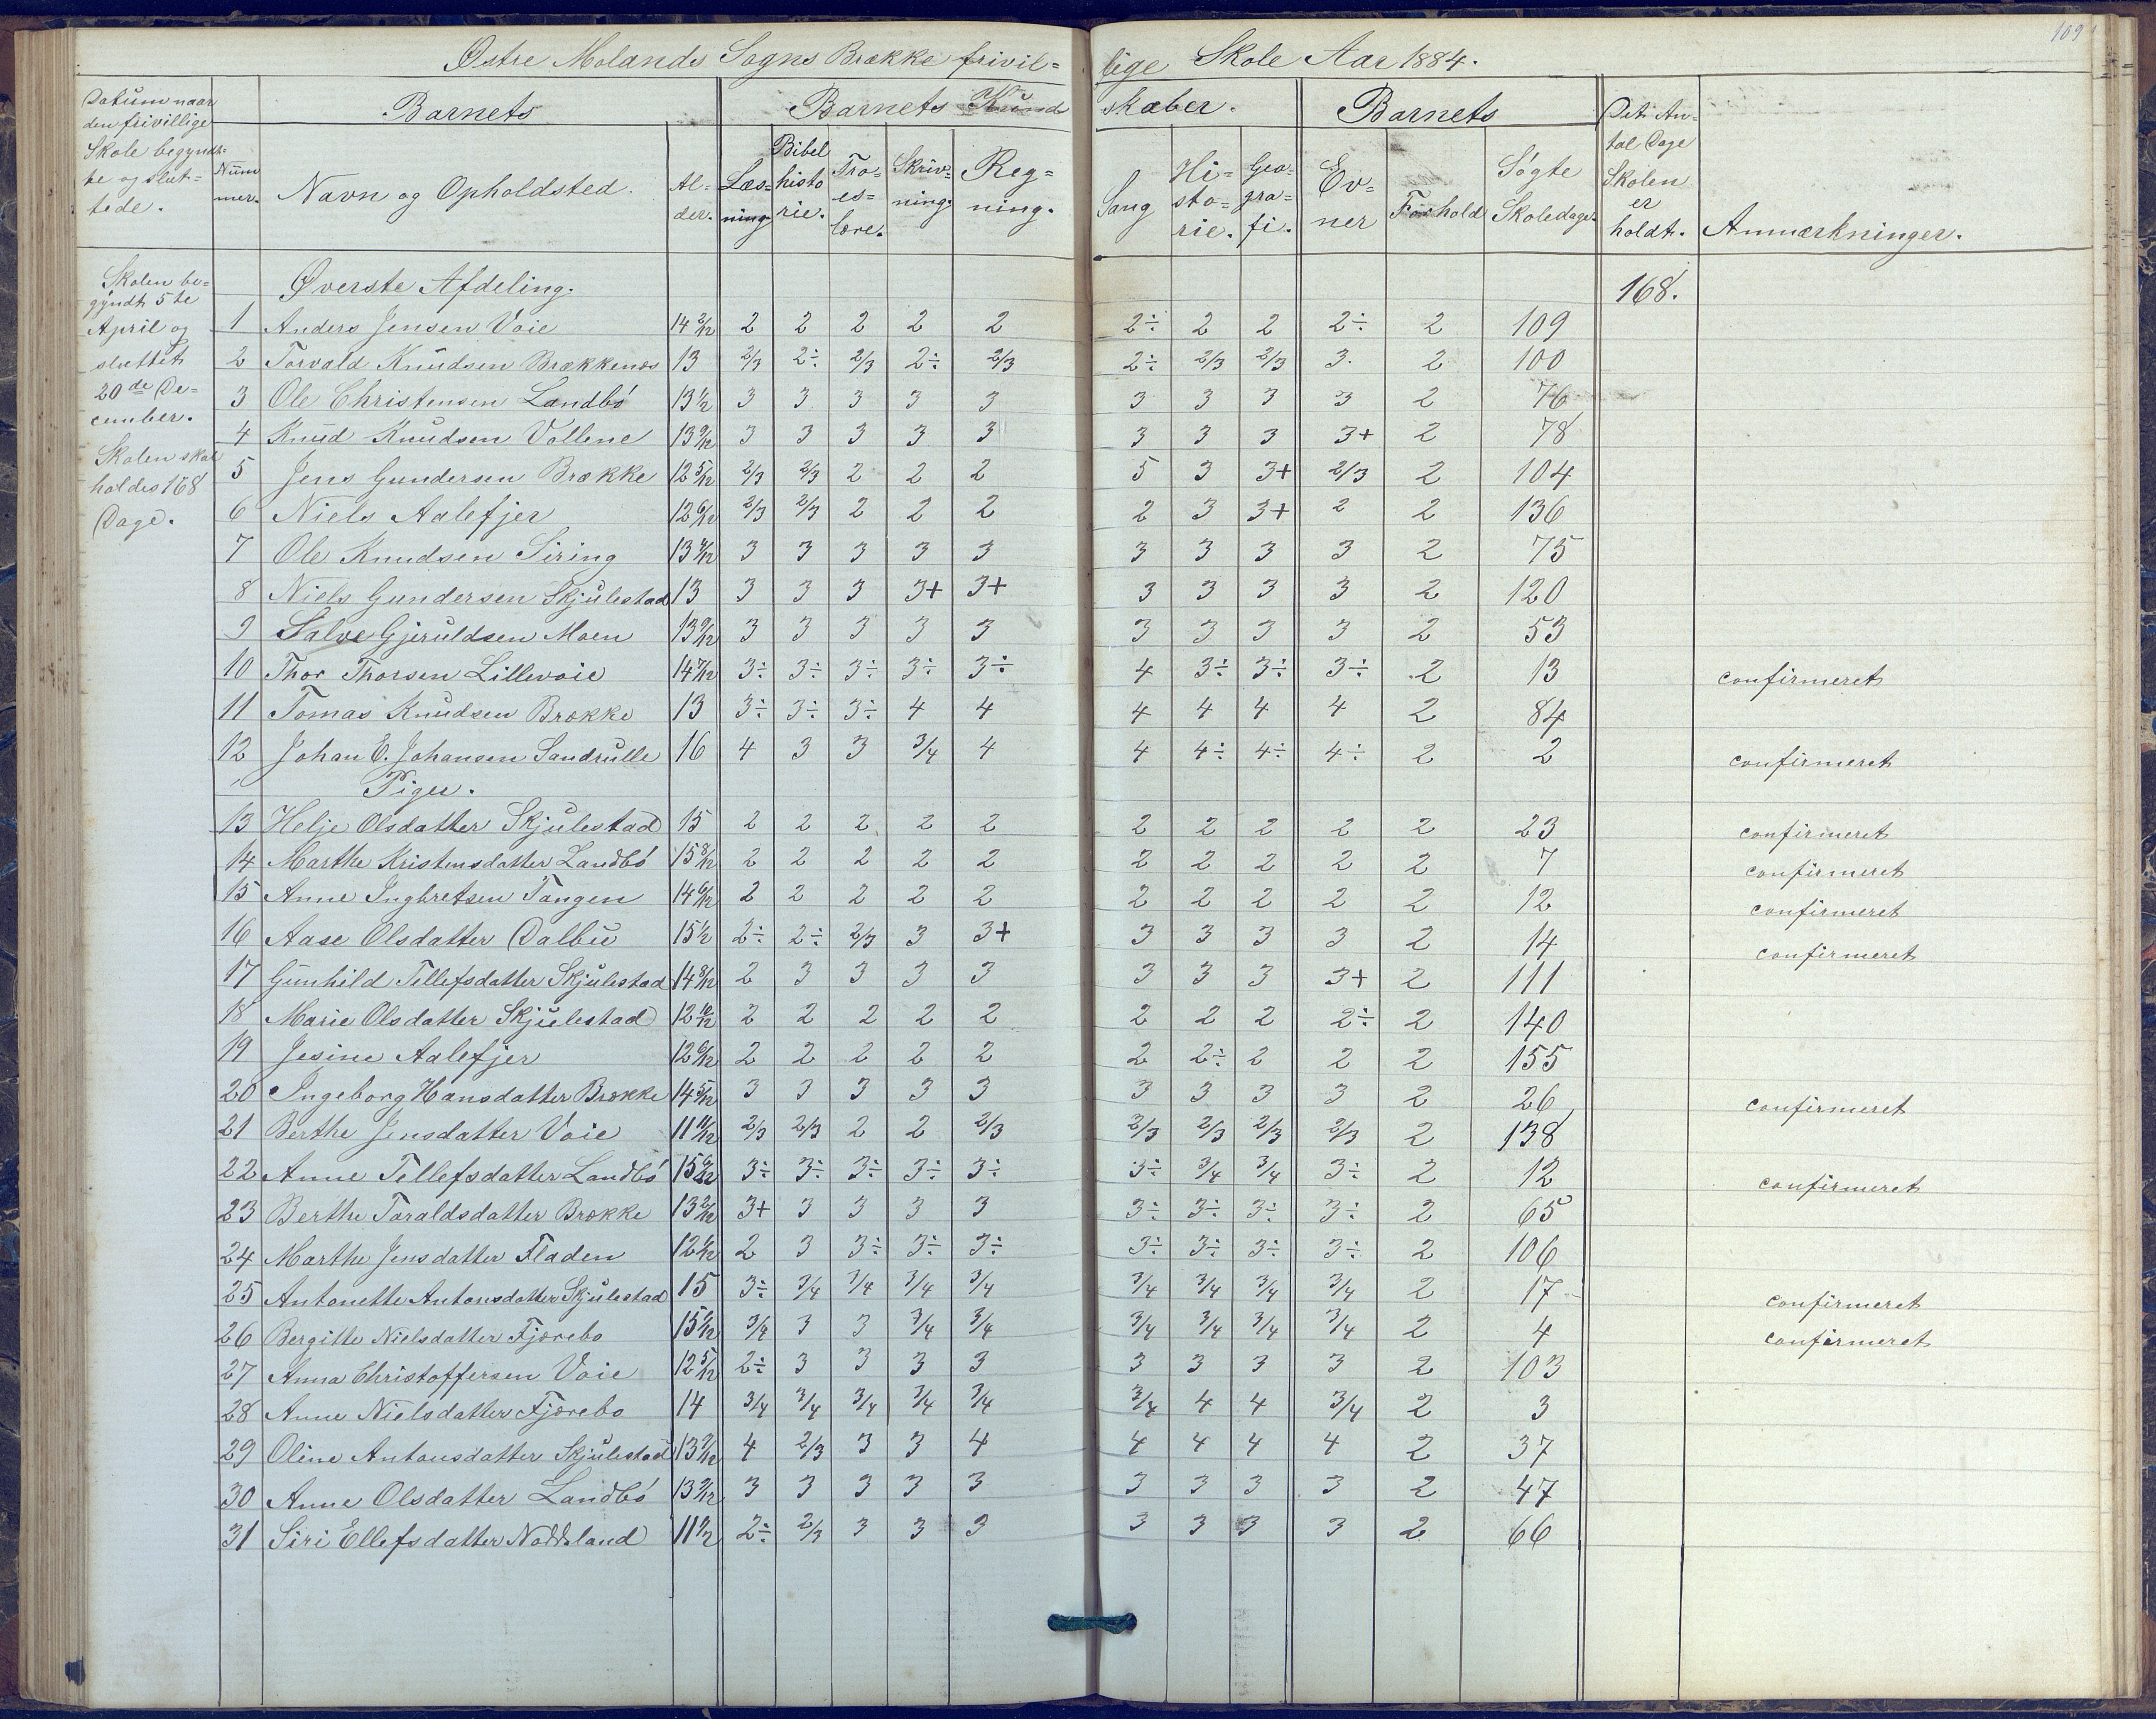 109
Østre Molands Sogns Brække frivil= lige Skole Aar 1884.
Datum naar den frivillige Skole begyndt= te og slut= tede.
Barnets
Num mer.
Navn og Opholdsted.
Al= der.
Barnets Kund skaber.
Læs= ning
Bibel histo rie.
Tro= es= lære.
Skriv= ning.
Reg= ning.
Sang
Hi= sto= rie.
Geo= gra= fi.
Barnets
Ev= ner
Forhold
Søgte Skoledage.
Det An= tal Dage Skolen er holdt.
Anmærkninger.
Skolen be=
gyndt 5te
April og
sluttet
20de De=
cember.
Skolen skal
holdes 168
Dage.
Øverste Afdeling. 168.
1 Anders Jensen Voie 14 2/12 2 2 2 2 2 2÷ 2 2 2÷ 2 109
2 Torvald Knudsen Brækkenæs 13 2/3 2÷ 2/3 2÷ 2/3 2÷ 2/3 2/3 3. 2 100
3 Ole Christensen Landbö 13 1/2 3 3 3 3 3 3 3 3 3 2 76
4 Knud Knudsen Vollene 13 9/12 3 3 3 3 3 3 3 3 3+ 2 78
5 Jens Gundersen Brække 12 5/12 2/3 2/3 2 2 2 5 3 3+ 2/3 2 104
6 Niels Aalefjer 12 6/12 2/3 2/3 2 2 2 2 3 3+ 2 2 136
7 Ole Knudsen Siring 13 4/12 3 3 3 3 3 3 3 3 3 2 75
8 Niels Gundersen Skjulestad 13 3 3 3 3+ 3+ 3 3 3 3 2 120
9 Salve Gjeruldsen Moen 13 9/12 3 3 3 3 3 3 3 3 3 2 53
10 Thor Thorsen Lillevoie 14 7/12 3÷ 3÷ 3÷ 3÷ 3÷ 4 3÷ 3÷ 3÷ 2 13 confirmeret
11 Tomas Knudsen Brække 13 3÷ 3÷ 3÷ 4 4 4 4 4 4 2 84
12 Johan E. Johansen Sandrulle 16 4 3 3 3/4 4 4 4÷ 4÷ 4÷ 2 2 confirmeret
Piger.
13 Helje Olsdatter Skjulestad 15 2 2 2 2 2 2 2 2 2 2 23 confirmeret
14 Marthe Kristensdatter Landbö 15 8/12 2 2 2 2 2 2 2 2 2 2 7 confirmeret
15 Anne Ingbretsen Tangen 14 6/12 2 2 2 2 2 2 2 2 2 2 12 confirmeret
16 Aase Olsdatter Dalbu 15 1/2 2÷ 2÷ 2/3 3 3+ 3 3 3 3 2 14 confirmeret
17 Gunhild Tellefsdatter Skjulestad 14 8/12 2 3 3 3 3 3 3 3 3+ 2 111
18 Marie Olsdatter Skjulestad 12 10/12 2 2 2 2 2 2 2 2 2÷ 2 140
19 Jesine Aalefjer 12 6/12 2 2 2 2 2 2 2÷ 2 2 2 155
20 Ingeborg Hansdatter Brække 14 5/12 3 3 3 3 3 3 3 3 3 2 26 confirmeret
21 Berthe Jensdatter Voie 11 11/12 2/3 2/3 2 2 2/3 2/3 2/3 2/3 2/3 2 138
22 Anne Tellefsdatter Landbö 15 6/12 3÷ 3÷ 3÷ 3÷ 3÷ 3÷ 3/4 3/4 3÷ 2 12 confirmeret
23 Berthe Toraldsdatter Brække 13 2/12 3+ 3 3 3 3 3÷ 3÷ 3÷ 3÷ 2 65
24 Marthe Jensdatter Fladen 12 1/12 2 3 3÷ 3÷ 3÷ 3÷ 3÷ 3÷ 3÷ 2 106
25 Antonette Antonsdatter Skjulestad 15 3÷ 3/4 3/4 3/4 3/4 3/4 3/4 3/4 3/4 2 17 confirmeret
26 Bergitte Nielsdatter Fjærebo 15 2/12 3/4 3 3 3/4 3/4 3/4 3/4 3/4 3/4 2 4 confirmeret
27 Anna Christoffersen Voie 12 5/12 2÷ 3 3 3 3 3 3 3 3 2 103
28 Anne Nielsdatter Fjærebo 14 3/4 3/4 3/4 3/4 3/4 3/4 4 4 3/4 2 3
29 Oline Antonsdatter Skjulestad 13 7/12 4 2/3 3 3 4 4 4 4 4 2 37
30 Anne Olsdatter Landbö 13 7/12 3 3 3 3 3 3 3 3 3 2 47
31 Siri Ellefsdatter Noddeland 11 1/2 2÷ 2/3 3 3 3 3 3 3 3 2 66